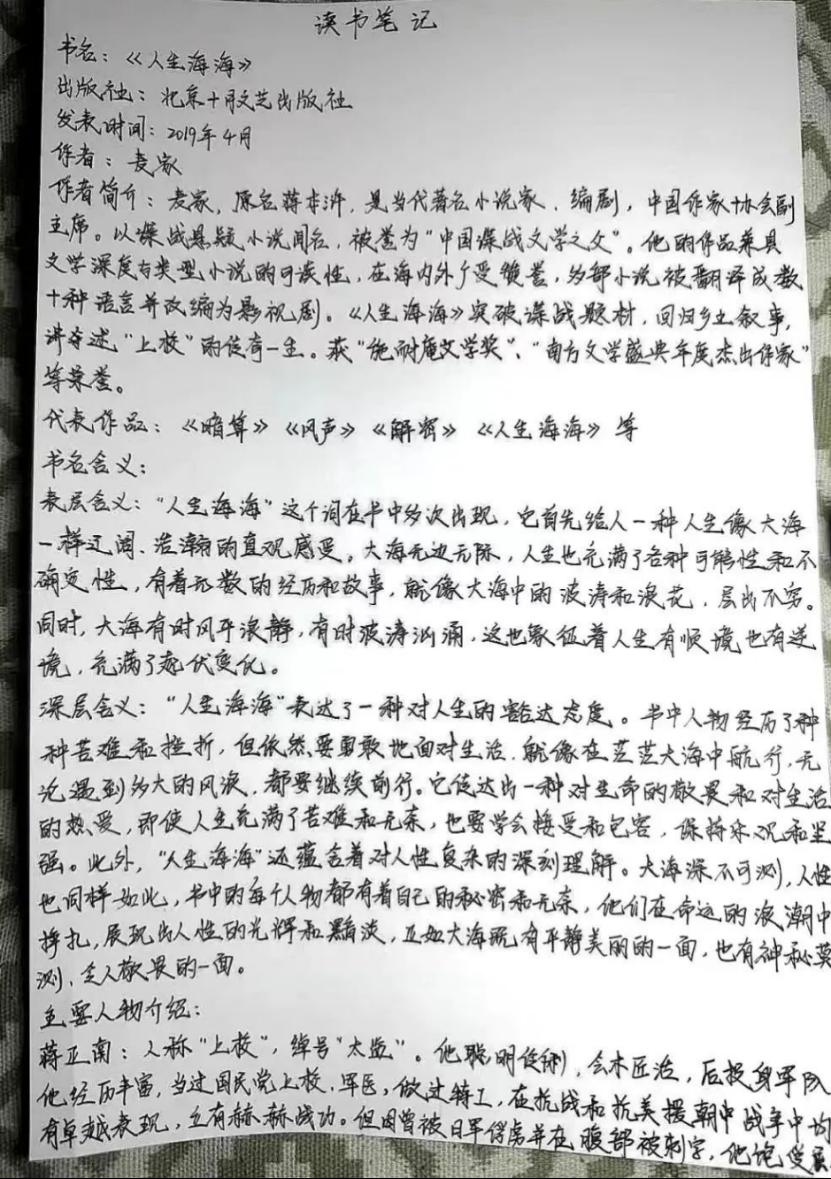 读书笔记
书名：《人生海海》
出版社：北京十月文艺出版社
发表时间：2019年4月
作者：麦家
作者简介：麦家，原名蒋本浒，是当代著名小说家、编剧，中国作家协会副
主席。以谍战悬疑小说闻名，被誉为“中国谍战文学之父”。他的作品兼具
文学深度与类型小说的可读性，在海内外广受赞誉，多部小说被翻译成数
十种语言并改编为影视剧。《人生海海》突破谍战题材，回归乡土叙事，
讲述“上校”的传奇一生。获“施耐庵文学奖”、“南方文学盛典年度杰出作家”
等荣誉。
代表作品：《暗算》《风声》《解密》《人生海海》等
书名含义：
表层含义：“人生海海”这个词在书中多次出现，它首先给人一种人生像大海
一样辽阔、浩瀚的直观感受。大海无边无际，人生也充满了各种可能性和不
确定性，有着无数的经历和故事，就像大海中的波涛和浪花，层出不穷。
同时，大海有时风平浪静，有时波涛汹涌，这也象征着人生有顺境也有逆
境，充满了起伏变化。
深层含义：“人生海海”表达了一种对人生的豁达态度。书中人物经历了种
种苦难和挫折，但依然要勇敢地面对生活，就像在茫茫大海中航行，无
论遇到多大的风浪，都要继续前行。它传达出一种对生命的敬畏和对生活
的热爱，即使人生充满了苦难和无奈，也要学会接受和包容，保持乐观和坚
强。此外，“人生海海”还蕴含着对人性复杂的深刻理解。大海深不可测，人性
也同样如此，书中的每个人物都有着自己的秘密和无奈，他们在命运的浪潮中
挣扎，展现出人性的光辉和黯淡，正如大海既有平静美丽的一面，也有神秘莫
测，令人敬畏的一面。
主要人物介绍：
蒋正南：人称“上校”，绰号“太监”。他聪明俊俐，会木匠活，后投身军队
他经历丰富，当过国民党上校、军医，做过特工，在抗战和抗美援朝中战争中均
有卓越表现，立有赫赫战功。但因曾被日军俘虏并在腹部被刺字，他饱受